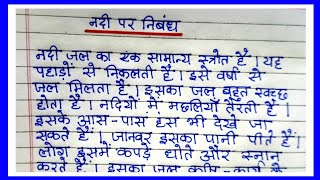 नदी पर निबंध
नदी जल का एक सामान्य स्त्रोत है। यह
पहाड़ों से निकलती है। इसे वर्षा से
जल मिलता है। इसका जल बहुत स्वच्छ
होता है। नदियों में मछलियाँ तैरती हैं।
इसके आस-पास हंस भी देखे जा
सकते हैं। जानवर इसका पानी पीते हैं।
लोग इसमें कपड़े धोते और स्नान
करते हैं। इसका जल कृषि-कार्य के